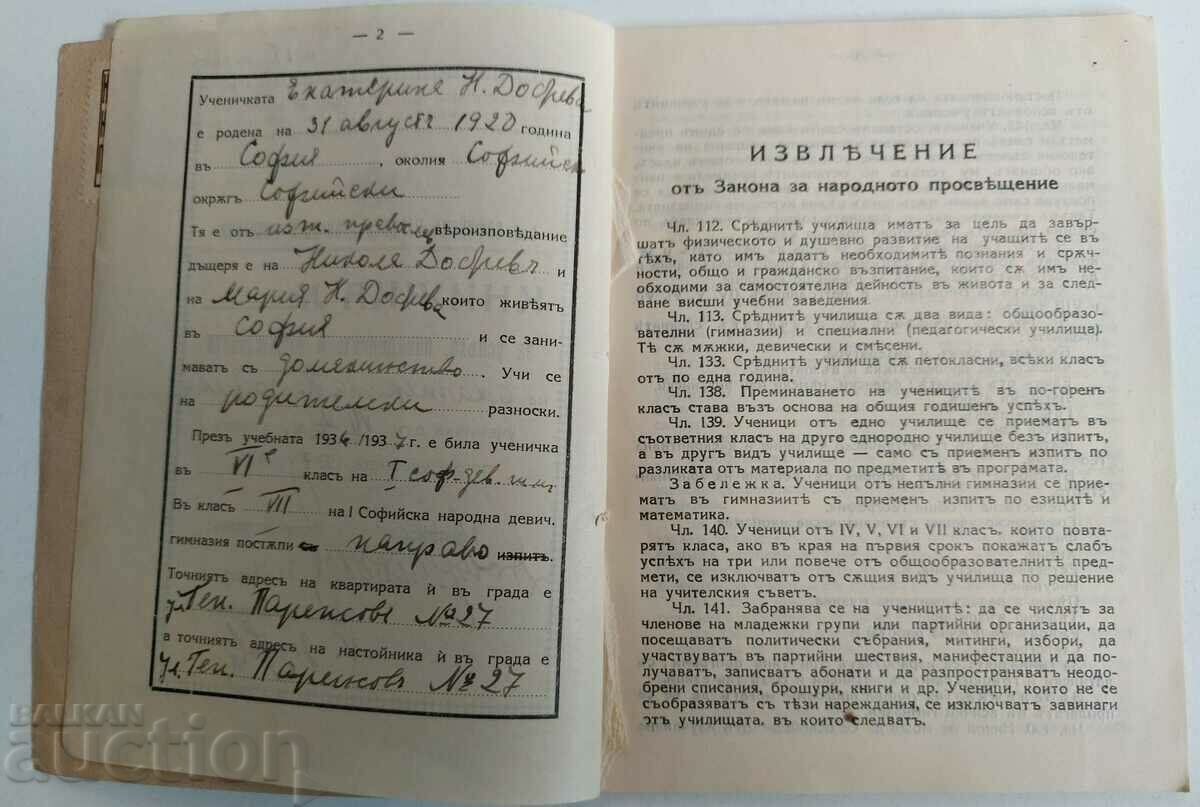 — 2 —
Ученичката Екатерина Н. Досрева
е родена на 31 августъ 1920 година
въ София, околия Софийска
окржгъ Софийски
Тя е отъ изт. правосл. вѣроизповѣдание
дъщеря е на Никола Досревъ и
на Мария Н. Досрева които живѣятъ
въ София и се зани-
маватъ съ домакинство. Учи се
на родителски разноски.
Презъ учебната 1936/1937 г. е била ученичка
въ VI класъ на I соф. дев. гим.
Въ класъ VII на I Софийска народна девич.
гимназия постѫпи направо изпитъ.
Точниятъ адресъ на квартирата ѝ въ града е
ул. Ген. Паренсовъ № 27
а точниятъ адресъ на настойника ѝ въ града е
ул. Ген. Паренсовъ № 27
ИЗВЛѢЧЕНИЕ
отъ Закона за народното просвѣщение
Чл. 112. Срѣднитѣ училища иматъ за цель да завър-
шатъ физическото и душевно развитие на учащитѣ се въ
тѣхъ, като имъ дадатъ необходимитѣ познания и срѫч-
ности, общо и гражданско възпитание, които сѫ имъ не-
обходими за самостоятелна дейность въ живота и за след-
ване висши учебни заведения.
Чл. 113. Срѣднитѣ училища сѫ два вида: общообразо-
вателни (гимназии) и специални (педагогически училища).
Тѣ сѫ мѫжки, девически и смѣсени.
Чл. 133. Срѣднитѣ училища сѫ петокласни, всѣки класъ
отъ по една година.
Чл. 138. Преминаването на ученицитѣ въ по-горенъ
класъ става възъ основа на общия годишенъ успѣхъ.
Чл. 139. Ученици отъ едно училище се приематъ въ
съответния класъ на друго еднородно училище безъ изпитъ,
а въ другъ видъ училище — само съ приеменъ изпитъ по
разликата отъ материала по предметитѣ въ програмата.
Забележка. Ученици отъ непълни гимназии се прие-
матъ въ гимназиитѣ съ приеменъ изпитъ по езицитѣ и
математика.
Чл. 140. Ученици отъ IV, V, VI и VII класъ, които повта-
рятъ класа, ако въ края на първия срокъ покажатъ слабъ
успѣхъ на три или повече отъ общообразователнитѣ пред-
мети, се изключватъ отъ сѫщия видъ училища по решение
на учителския съветъ.
Чл. 141. Забранява се на ученицитѣ: да се числятъ за
членове на младежки групи или партийни организации, да
посещаватъ политически събрания, митинги, избори, да
участвуватъ въ партийни шествия, манифестации и да по-
лучаватъ, записватъ абонати и да разпространяватъ неодо-
брени списания, брошури, книги и др. Ученици, които не се
съобразяватъ съ тѣзи нареждания, се изключватъ завинаги
отъ училищата, въ които следватъ.
BALKAN
auction